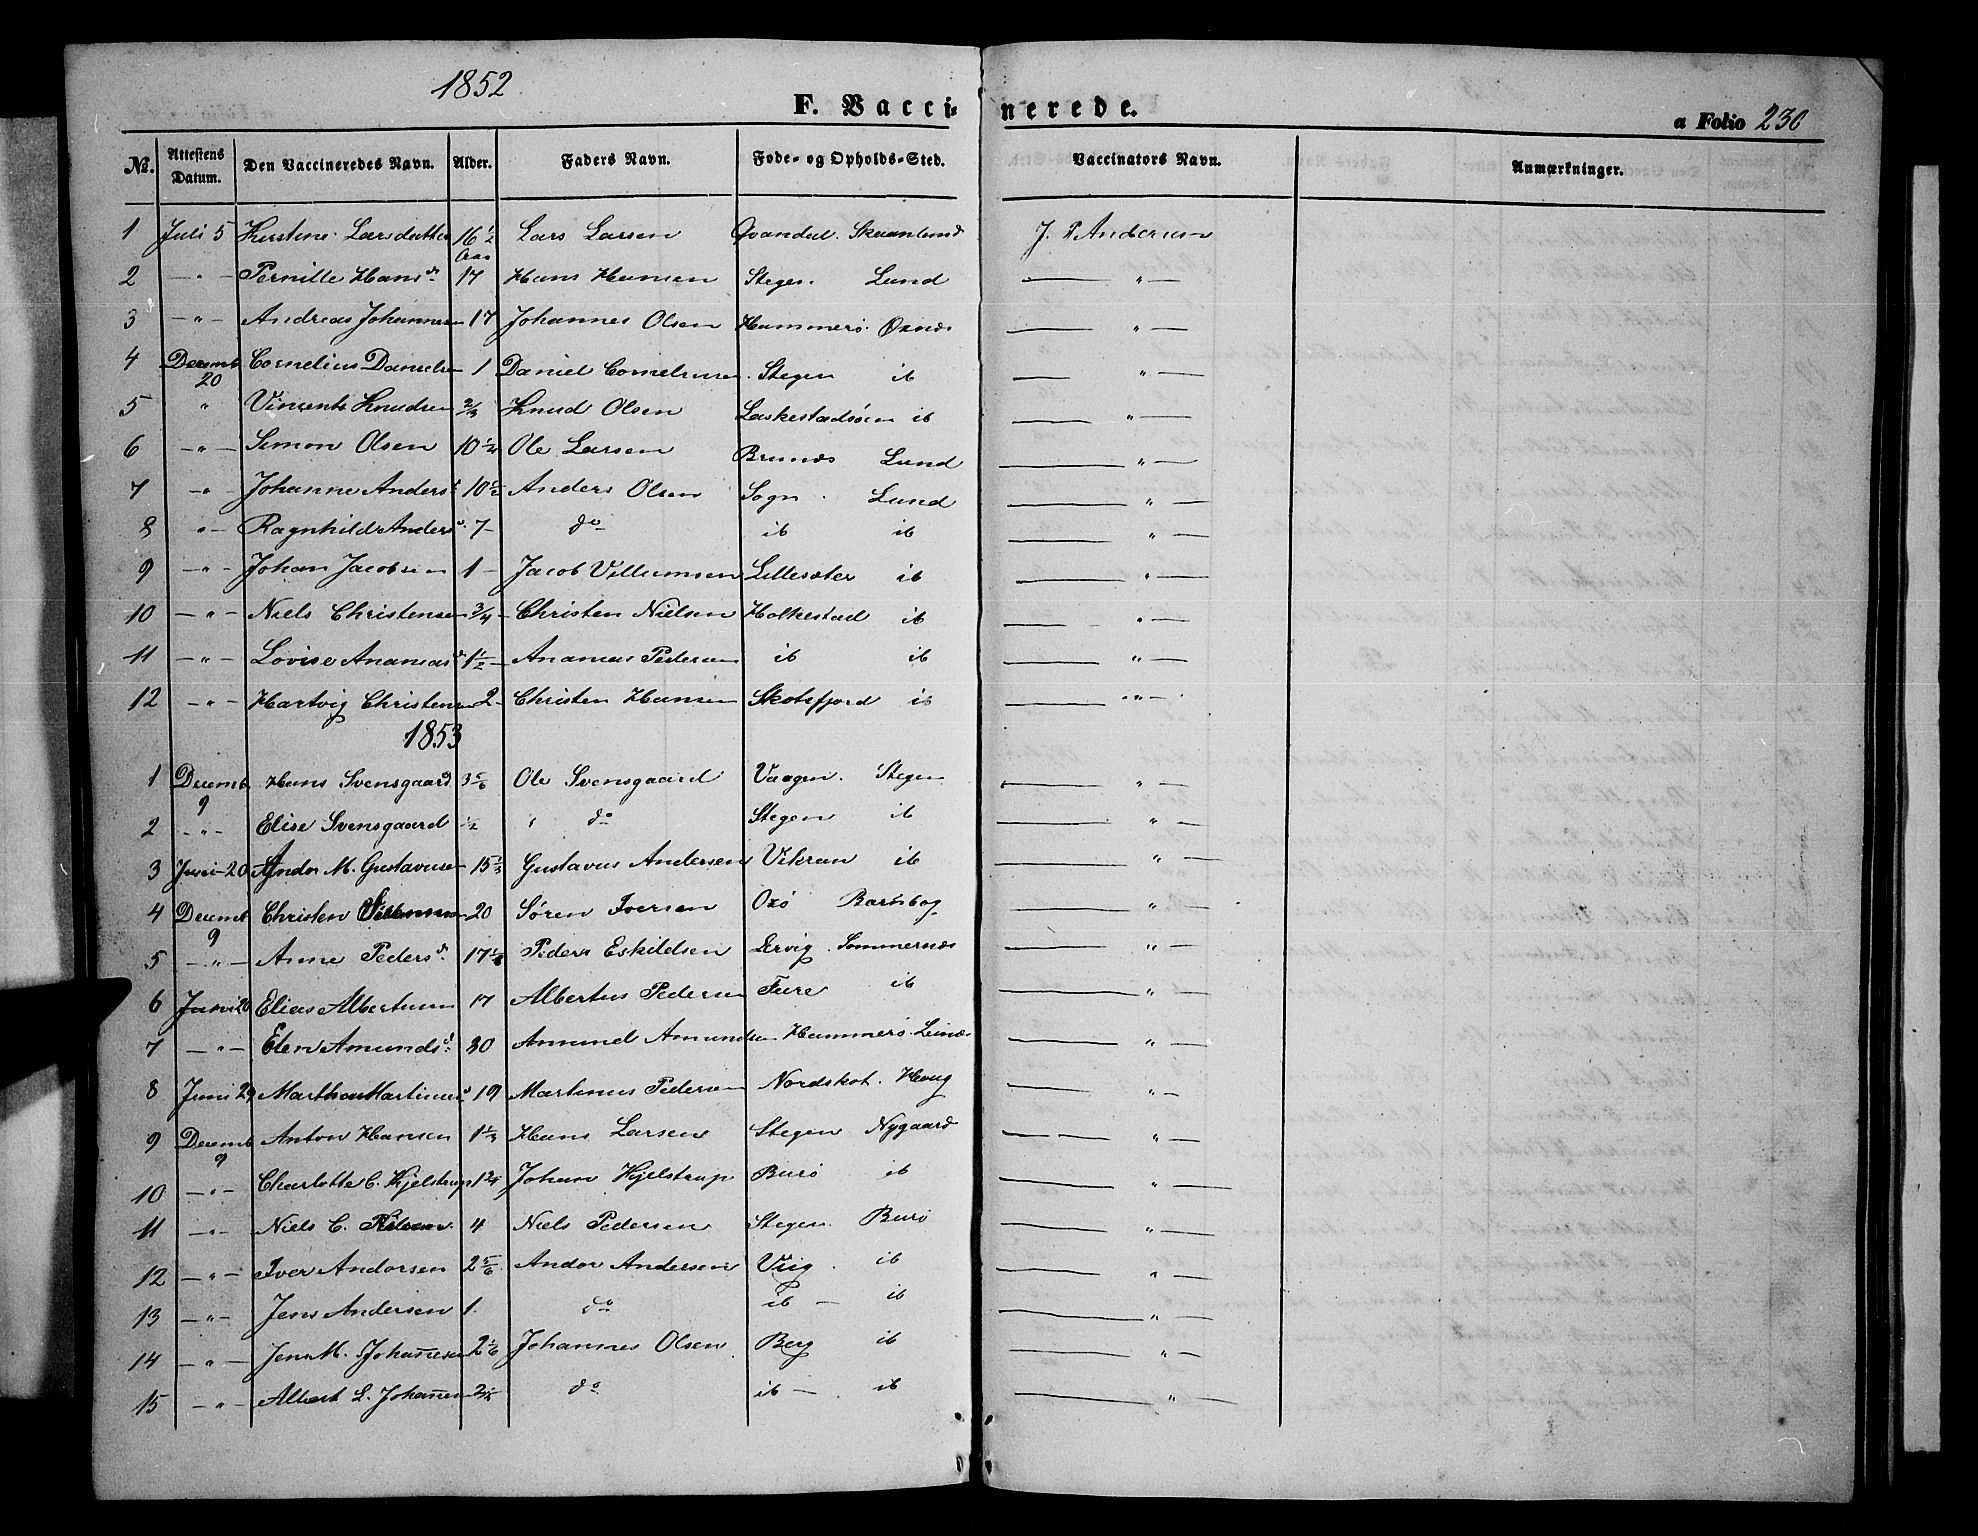 1852
F. Vaccinerede.
a Folio 230
No. Attestens Datum. Den Vaccineredes Navn. Alder. Faders Navn. Føde- og Opholds-Sted. Vaccinators Navn. Anmærkninger.
1 Juli 5 Kirstine Larsdatter 16 1/2 Aar Lars Larsen Qvandal. J. P. Andersen
2 — " — Pernille Hansd. 17 Hans Hansen Stegen. Lund — " —
3 — " — Andreas Johannesen 17 Johannes Olsen Hammerø. Oxnæs — " —
4 Decemb 20 Cornelius Danielsen 1 Daniel Corneliusen Stegen ib — " —
5 " Vincents Knudsen 2/3 Knud Olsen Laskestadøen ib — " —
6 — " — Simon Olsen 10 1/4 Ole Larsen Brunæs Lund — " —
7 — " — Johanne Andersd. 10 1/2 Anders Olsen Sogn. Lund — " —
8 " — Ragnhild Andersd. 7 — do ib ib — " —
9 — " — Johan Jacobsen 1 — Jacob Villumsen Lillesæter ib — " —
10 — " — Niels Christensen 3/4 — Christen Nielsen Holkestad ib — " —
11 — " — Lovise Ananiasd. 1 1/2 — Ananias Pedersen ib ib — " —
12 — " — Hartvig Christensen 2 — Christen Hansen Skotsfjord ib — " —
1853
1 Decemb 9 Hans Svensgaard 3 5/6 Ole Svensgaard Vaagen. Stegen — " —
2 — " — Elise Svensgaard 1/2 " do Stegen ib — " —
3 Juni 20 Andor M. Gustavusen 15 1/3 Gustavus Andersen Vikran ib — " —
4 Decemb 9 Christen 20 Søren Iversen Oxø — " —
5 — " — Anne Pedersd. 17 Peder Eskildsen Lervig. Sommernæs — " —
6 Juni 20 Elias Albertusen 17 Albertus Pedersen Fure ib — " —
7 — " — Elen Amundsd. 30 Amund Amundsen Hammerø. Leinæs — " —
8 Juni 29 Martha Martinusd. 19 Martinus Pedersen Nordskot. Haug — " —
9 Decemb 9 Anton Hansen 1 1/3 Hans Larsen Stegen Nygaard — " —
10 — " — Charlotte C. Hjelstrup 1 3/4 Johan Hjelstrup Burø ib — " —
11 — " — Niels C. 4 Niels Pedersen Stegen. Burø — " —
12 — " — Iver Andorsen 2 5/6 Andor Andersen Viig. ib — " —
13 — " — Jens Andersen 1. do ib — ib — " —
14 — " — Jens M. Johanesen 2 1/6 Johannes Olsen Berg ib — " —
15 — " — Albert L. Johanesen do ib — ib — " —